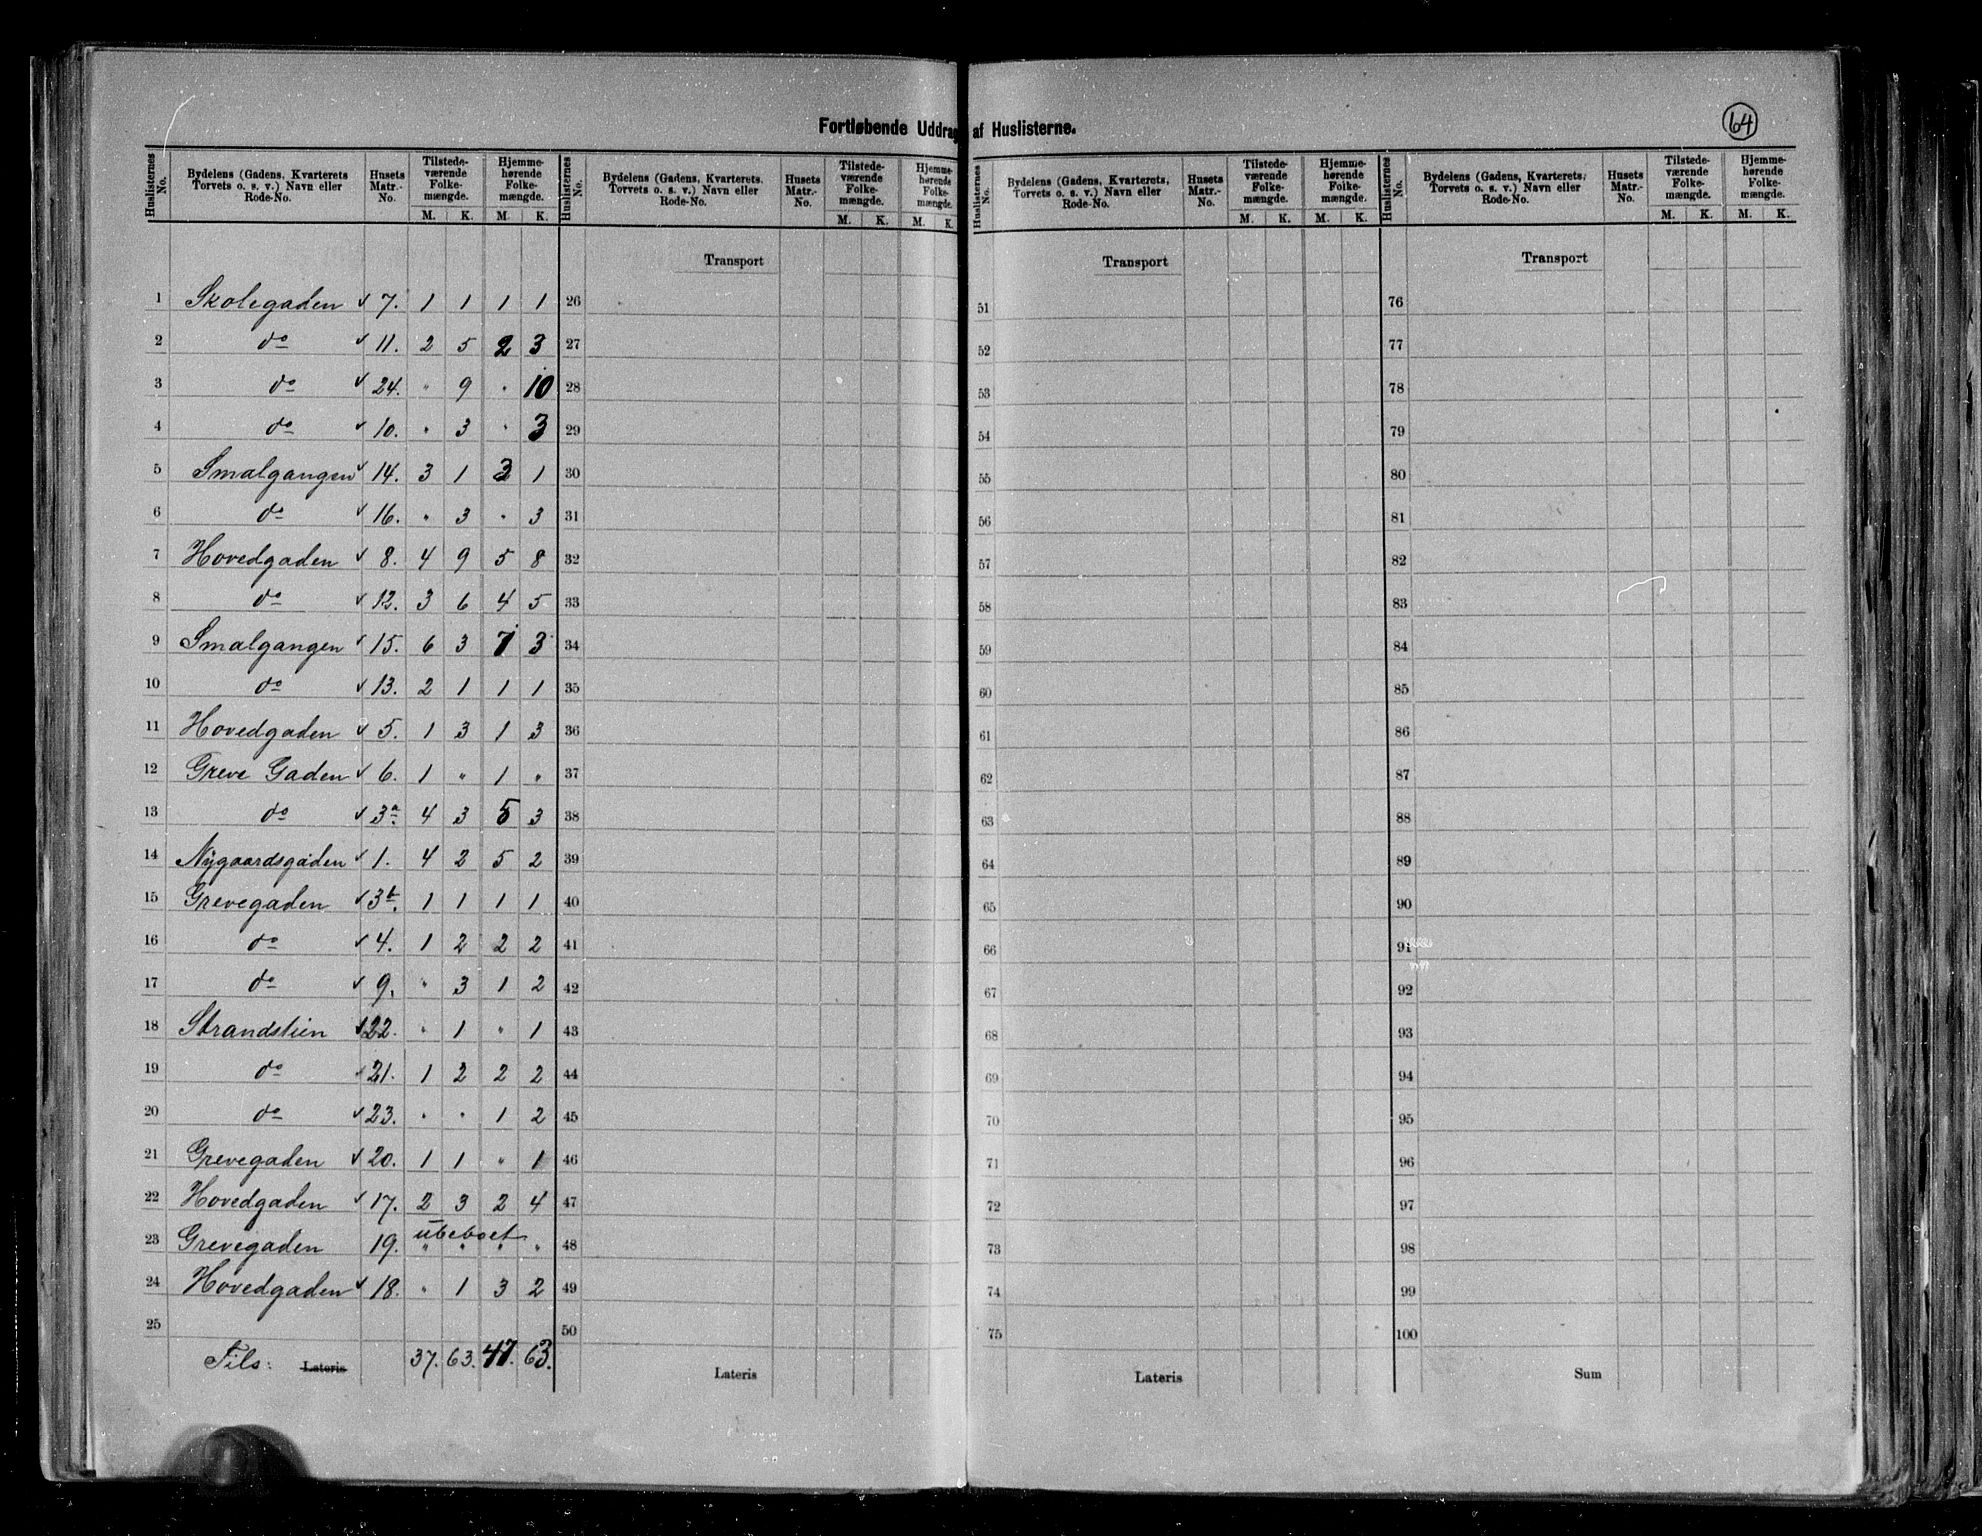 Fortløbende Uddrag af Huslisterne.
64
Huslisternes No. | Bydelens (Gadens, Kvarterets Torvets o. s. v.) Navn eller Rode-No. | Husets Matr.-No. | Tilstedeværende Folkemængde. M. K. | Hjemmehørende Folkemængde. M. K.
1 Skolegaden 7. 1 1 1 1
2 do 11. 2 5 2 3
3 do 24. " 9 " 10
4 do 10. " 3 " 3
5 Smalgangen 14. 3 1 3 1
6 do 16. " 3 " 3
7 Hovedgaden 8. 4 9 5 8
8 do 12. 3 6 4 5
9 Smalgangen 15. 6 3 7 3
10 do 13. 2 1 1 1
11 Hovedgaden 5. 1 3 1 3
12 Greve Gaden 6. 1 " 1 "
13 do 3a. 4 3 5 3
14 Nygaardsgaden 1. 4 2 5 2
15 Grevegaden 3b. 1 1 1 1
16 do 4. 1 2 2 2
17 do 9. " 3 1 2
18 Strandstien 22. " 1 " 1
19 do 21. 1 2 2 2
20 do 23. " " 1 2
21 Grevegaden 20. 1 1 " 1
22 Hovedgaden 17. 2 3 2 4
ubeboet
23 Grevegaden 19. " " " "
24 Hovedgaden 18. " 1 3 2
25
Tils: Lateris 37. 63. 47. 63.
Huslisternes No. | Bydelens (Gadens, Kvarterets, Torvets o. s. v.) Navn eller Rode-No. | Husets Matr.-No. | Tilstedeværende Folkemængde. M. K. | Hjemmehørende Folkemængde. M. K.
Transport
26
27
28
29
30
31
32
33
34
35
36
37
38
39
40
41
42
43
44
45
46
47
48
49
50
Lateris
Huslisternes No. | Bydelens (Gadens, Kvarterets, Torvets o. s. v.) Navn eller Rode-No. | Husets Matr.-No. | Tilstedeværende Folkemængde. M. K. | Hjemmehørende Folkemængde. M. K.
Transport
51
52
53
54
55
56
57
58
59
60
61
62
63
64
65
66
67
68
69
70
71
72
73
74
75
Lateris
Huslisternes No. | Bydelens (Gadens, Kvarterets, Torvets o. s. v.) Navn eller Rode-No. | Husets Matr.-No. | Tilstedeværende Folkemængde. M. K. | Hjemmehørende Folkemængde. M. K.
Transport
76
77
78
79
80
81
82
83
84
85
86
87
88
89
90
91
92
93
94
95
96
97
98
99
100
Sum